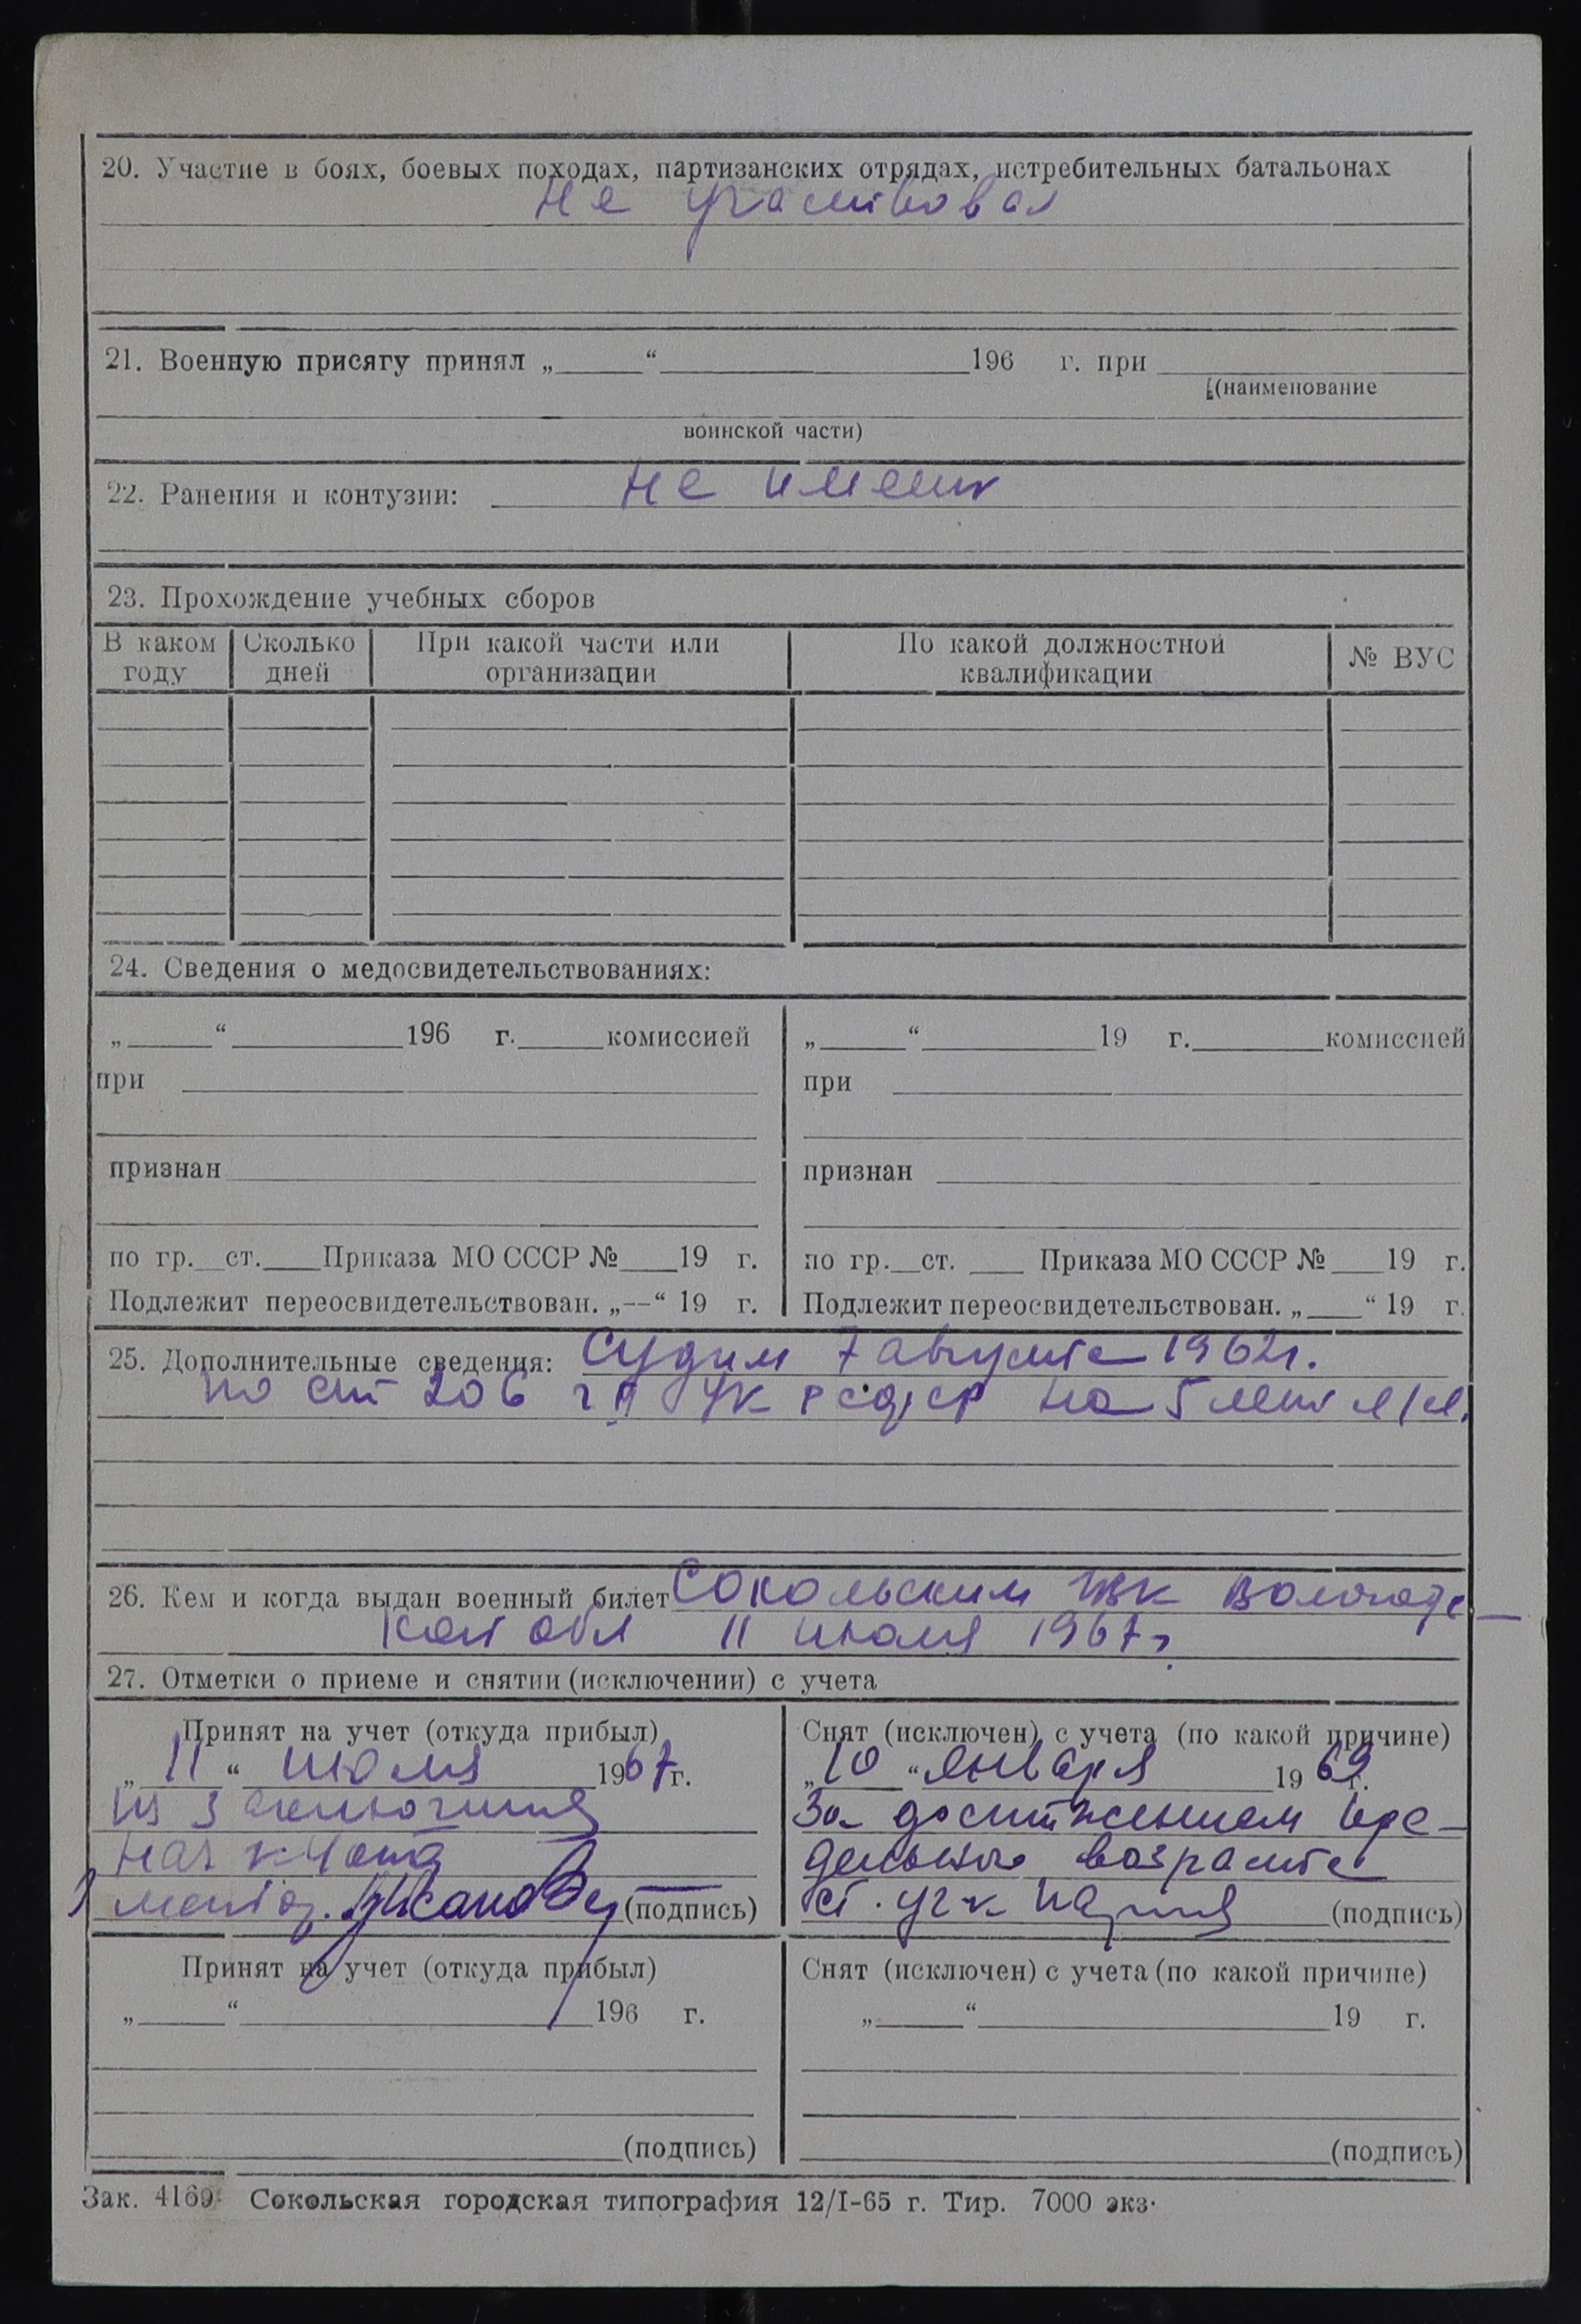 20. Участие в боях, боевых походах, партизанских отрядах, истребительных батальонах
не участвовал
21. Военную присягу принял „____“ ____ 196 г. при ____
(наименование
воинской части)
22. Ранения и контузии: не имеит
23. Прохождение учебных сборов
В каком году | Сколько дней | При какой части или организации | По какой должностной квалификации | № ВУС
24. Сведения о медосвидетельствованиях:
„____“ ____ 196 г. ____ комиссией
при
признан
по гр.__ст.____Приказа МО СССР №____19 г.
Подлежит переосвидетельствован. „--“ 19 г.
„____“ ____ 19 г. ____ комиссией
при
признан
по гр.__ст. ____ Приказа МО СССР №____19 г.
Подлежит переосвидетельствован. „____“ 19 г.
25. Дополнительные сведения: Судим 7 августа 1962г.
по ст 206 ч УК РСФСР на 5 лет л/с.
26. Кем и когда выдан военный билет Сокольским Вологодс-
кой обл 11 июля 1967г.
27. Отметки о приеме и снятии (исключении) с учета
Принят на учет (откуда прибыл)
„11“ июля 1967г.
из заключения
нач
(подпись)
Снят (исключен) с учета (по какой причине)
„10“ января 1969г.
За достижением пре-
дельного возраста
ст. (подпись)
Принят на учет (откуда прибыл)
„____“ ____ 196 г.
(подпись)
Снят (исключен) с учета (по какой причине)
„____“ ____ 19 г.
(подпись)
Зак. 4169 Сокольская городская типография 12/I-65 г. Тир. 7000 экз.